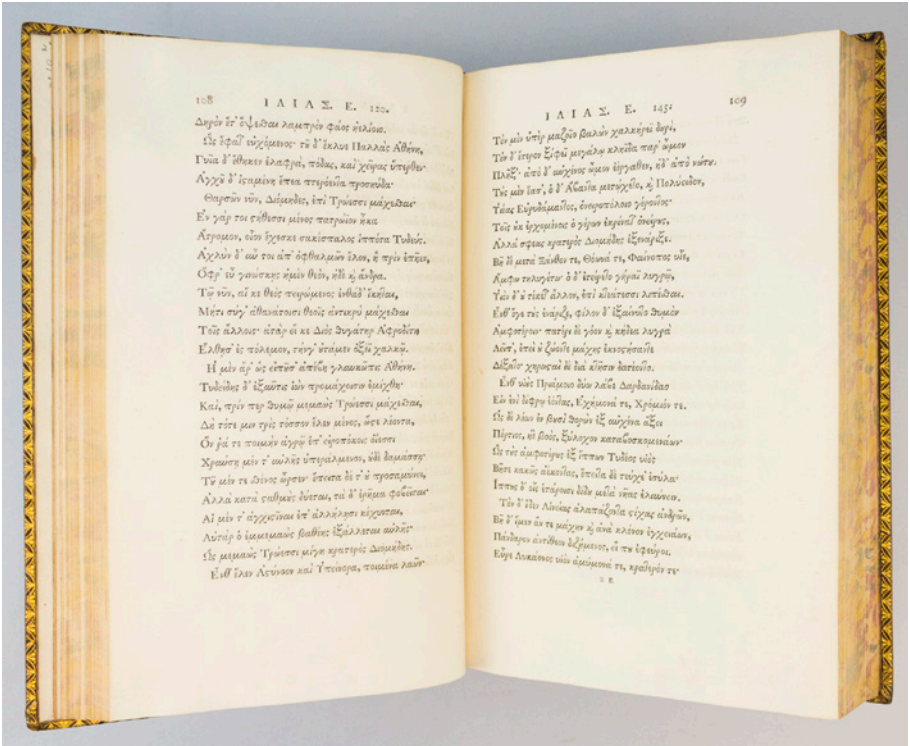 108 ΙΛΙΑΣ. Ε. 120.
Δηρὸν ἔτ' ὄψεσθαι λαμπρὸν φάος ἠελίοιο.
Ὣς ἔφατ' εὐχόμενος· τῦ δ' ἔκλυε Παλλὰς Ἀθήνη,
Γυῖα δ' ἔθηκεν ἐλαφρὰ, πόδας, καὶ χεῖρας ὕπερθεν·
Ἀγχῦ δ' ἱσταμένη ἔπεα πτερόεντα προσηύδα·
Θαρσῶν νῦν, Διόμηδες, ἐπὶ Τρώεσσι μάχεσθαι·
Ἐν γάρ τοι στήθεσσι μένος πατρώϊον ἧκα
Ἄτρομον, οἷον ἔχεσκε σακέσπαλος ἱππότα Τυδεύς.
Ἀχλὺν δ' αὖ τοι ἀπ' ὀφθαλμῶν ἕλον, ἣ πρὶν ἐπῆεν,
Ὄφρ' εὖ γινώσκῃς ἠμὲν θεὸν, ἠδὲ ϗ ἄνδρα.
Τῷ νῦν, αἴ κε θεὸς πειρώμενος ἐνθάδ' ἵκηται,
Μήτι σύγ' ἀθανάτοισι θεοῖς ἀντικρὺ μάχεσθαι
Τοῖς ἄλλοις· ἀτὰρ εἴ κε Διὸς θυγάτηρ Ἀφροδίτη
Ἔλθησ' ἐς πόλεμον, τήνγ' ὐτάμεν ὀξέϊ χαλκῷ.
Ἡ μὲν ἄρ' ὣς εἰπῦσ' ἀπέβη γλαυκῶπις Ἀθήνη.
Τυδείδης δ' ἐξαῦτις ἰὼν προμάχοισιν ἐμίχθη·
Καὶ, πρίν περ θυμῷ μεμαὼς Τρώεσσι μάχεσθαι,
Δὴ τότε μιν τρὶς τόσσον ἕλεν μένος, ὥστε λέοντα,
Ὅν ῥά τε ποιμὴν ἀγρῷ ἐπ' εἰροπόκοις ὀΐεσσι
Χραύσῃ μέν τ' αὐλῆς ὑπεράλμενον, ὐδὲ δαμάσσῃ·
Τῦ μέν τε σθένος ὦρσεν· ἔπειτα δέ τ' ὐ προσαμύνει,
Ἀλλὰ κατὰ σταθμὺς δύεται, τὰ δ' ἐρῆμα φοβεῖται·
Αἱ μέν τ' ἀγχιστῖναι ἐπ' ἀλλήλῃσι κέχυνται,
Αὐτὰρ ὁ ἐμμεμαὼς βαθέης ἐξάλλεται αὐλῆς·
Ὣς μεμαὼς Τρώεσσι μίγη κρατερὸς Διομήδης.
Ἔνθ' ἕλεν Ἀστύνοον καὶ Ὑπείνορα, ποιμένα λαῶν·
ΙΛΙΑΣ. Ε. 145. 109
Τὸν μὲν ὑπὲρ μαζοῖο βαλὼν χαλκήρεϊ δυρὶ,
Τὸν δ' ἕτερον ξίφεϊ μεγάλῳ κληῖδα παρ' ὦμον
Πλῆξ'· ἀπὸ δ' αὐχένος ὦμον ἐέργαθεν, ἠδ' ἀπὸ νώτυ.
Τὺς μὲν ἔασ', ὁ δ' Ἄβαντα μετῴχετο, ϗ Πολύειδον,
Υἱέας Εὐρυδάμαντος, ὀνειροπόλοιο γέροντος·
Τοῖς ὐκ ἐρχομένοις ὁ γέρων ἐκρίνατ' ὀνείρυς,
Ἀλλά σφεας κρατερὸς Διομήδης ἐξενάριξε.
Βῆ δὲ μετὰ Ξάνθον τε, Θόωνά τε, Φαίνοπος υἷε,
Ἄμφω τηλυγέτω· ὁ δ' ἐτείρετο γήραϊ λυγρῷ,
Υἱὸν δ' ὐ τέκετ' ἄλλον, ἐπὶ κτεάτεσσι λιπέσθαι.
Ἔνθ' ὅγε τὺς ἐνάριζε, φίλον δ' ἐξαίνυτο θυμὸν
Ἀμφοτέρων· πατέρι δὲ γόον ϗ κήδεα λυγρὰ
Λεῖπ', ἐπεὶ ὐ ζώοντε μάχης ἐκνοστήσαντε
Δέξατο· χηρωσταὶ δὲ διὰ κτῆσιν δατέοντο.
Ἔνθ' υἷας Πριάμοιο δύω λάβε Δαρδανίδαο
Εἰν ἑνὶ δίφρῳ ἐόντας, Ἐχήμονά τε, Χρόμιόν τε.
Ὡς δὲ λέων ἐν βυσὶ θορὼν ἐξ αὐχένα ἄξει
Πόρτιος, ἠὲ βοὸς, ξύλοχον καταβοσκομενάων·
Ὣς τὺς ἀμφοτέρυς ἐξ ἵππων Τυδέος υἱὸς
Βῆσε κακῶς ἀέκοντας, ἔπειτα δὲ τεύχε' ἐσύλα·
Ἵππυς δ' οἷς ἑτάροισι δίδυ μετὰ νῆας ἐλαύνειν.
Τὸν δ' ἴδεν Αἰνείας ἀλαπάζοντα στίχας ἀνδρῶν,
Βῆ δ' ἴμεν ἄν τε μάχην ϗ ἀνὰ κλόνον ἐγχειάων,
Πάνδαρον ἀντίθεον διζήμενος, εἴ πυ ἐφεύροι.
Εὗρε Λυκάονος υἱὸν ἀμύμονά τε, κρατερόν τε·